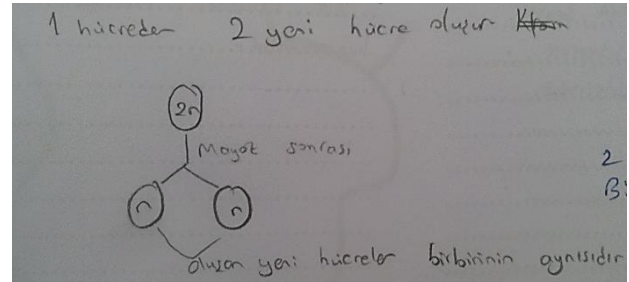 1 hücreden 2 yeni hücre oluşur
2n
Mayoz sonrası
2
n n
oluşan yeni hücreler birbirinin aynısıdır